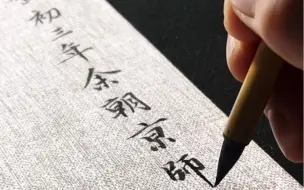 初三年余朝京師